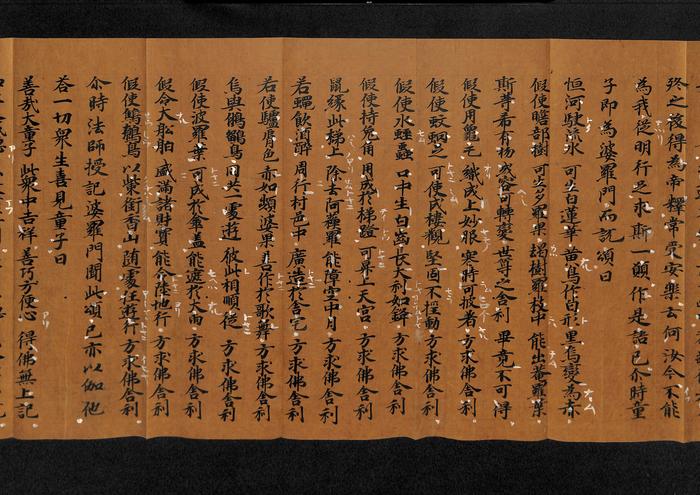 終之後得為帝釋常受安樂云何汝今不能
為我從明行足求斯一願作是語已尒時童
子即為婆羅門而說頌曰
恒河駛流水 可生白蓮華 黃鳥作白形 黑烏變為赤
假使贍部樹 可生多羅果 朅樹羅枝中 能出菴羅葉
斯等希有物 或容可轉變 世尊之舍利 畢竟不可得
假使用龜毛 織成上妙服 寒時可披著 方求佛舍利
假使蚊蚋足 可使成樓觀 堅固不搖動 方求佛舍利
假使水蛭蟲 口中生白齒 長大利如鋒 方求佛舍利
假使持兔角 用成於梯蹬 可昇上天宮 方求佛舍利
鼠緣此梯上 除去阿蘇羅 能障空中月 方求佛舍利
若蠅飲酒醉 周行村邑中 廣造於舍宅 方求佛舍利
若使驢脣色 赤如頻婆果 善作於歌舞 方求佛舍利
烏與鵂鶹鳥 同共一處遊 彼此相順從 方求佛舍利
假使波羅葉 可成於傘蓋 能遮於大雨 方求佛舍利
假令大船舶 盛滿諸財寶 能令陸地行 方求佛舍利
假使鷦鷯鳥 以觜銜香山 隨處任遊行 方求佛舍利
尒時法師授記婆羅門聞此頌已亦以伽他
荅一切眾生喜見童子曰
善哉大童子 此眾中吉祥 善巧方便心 得佛無上記